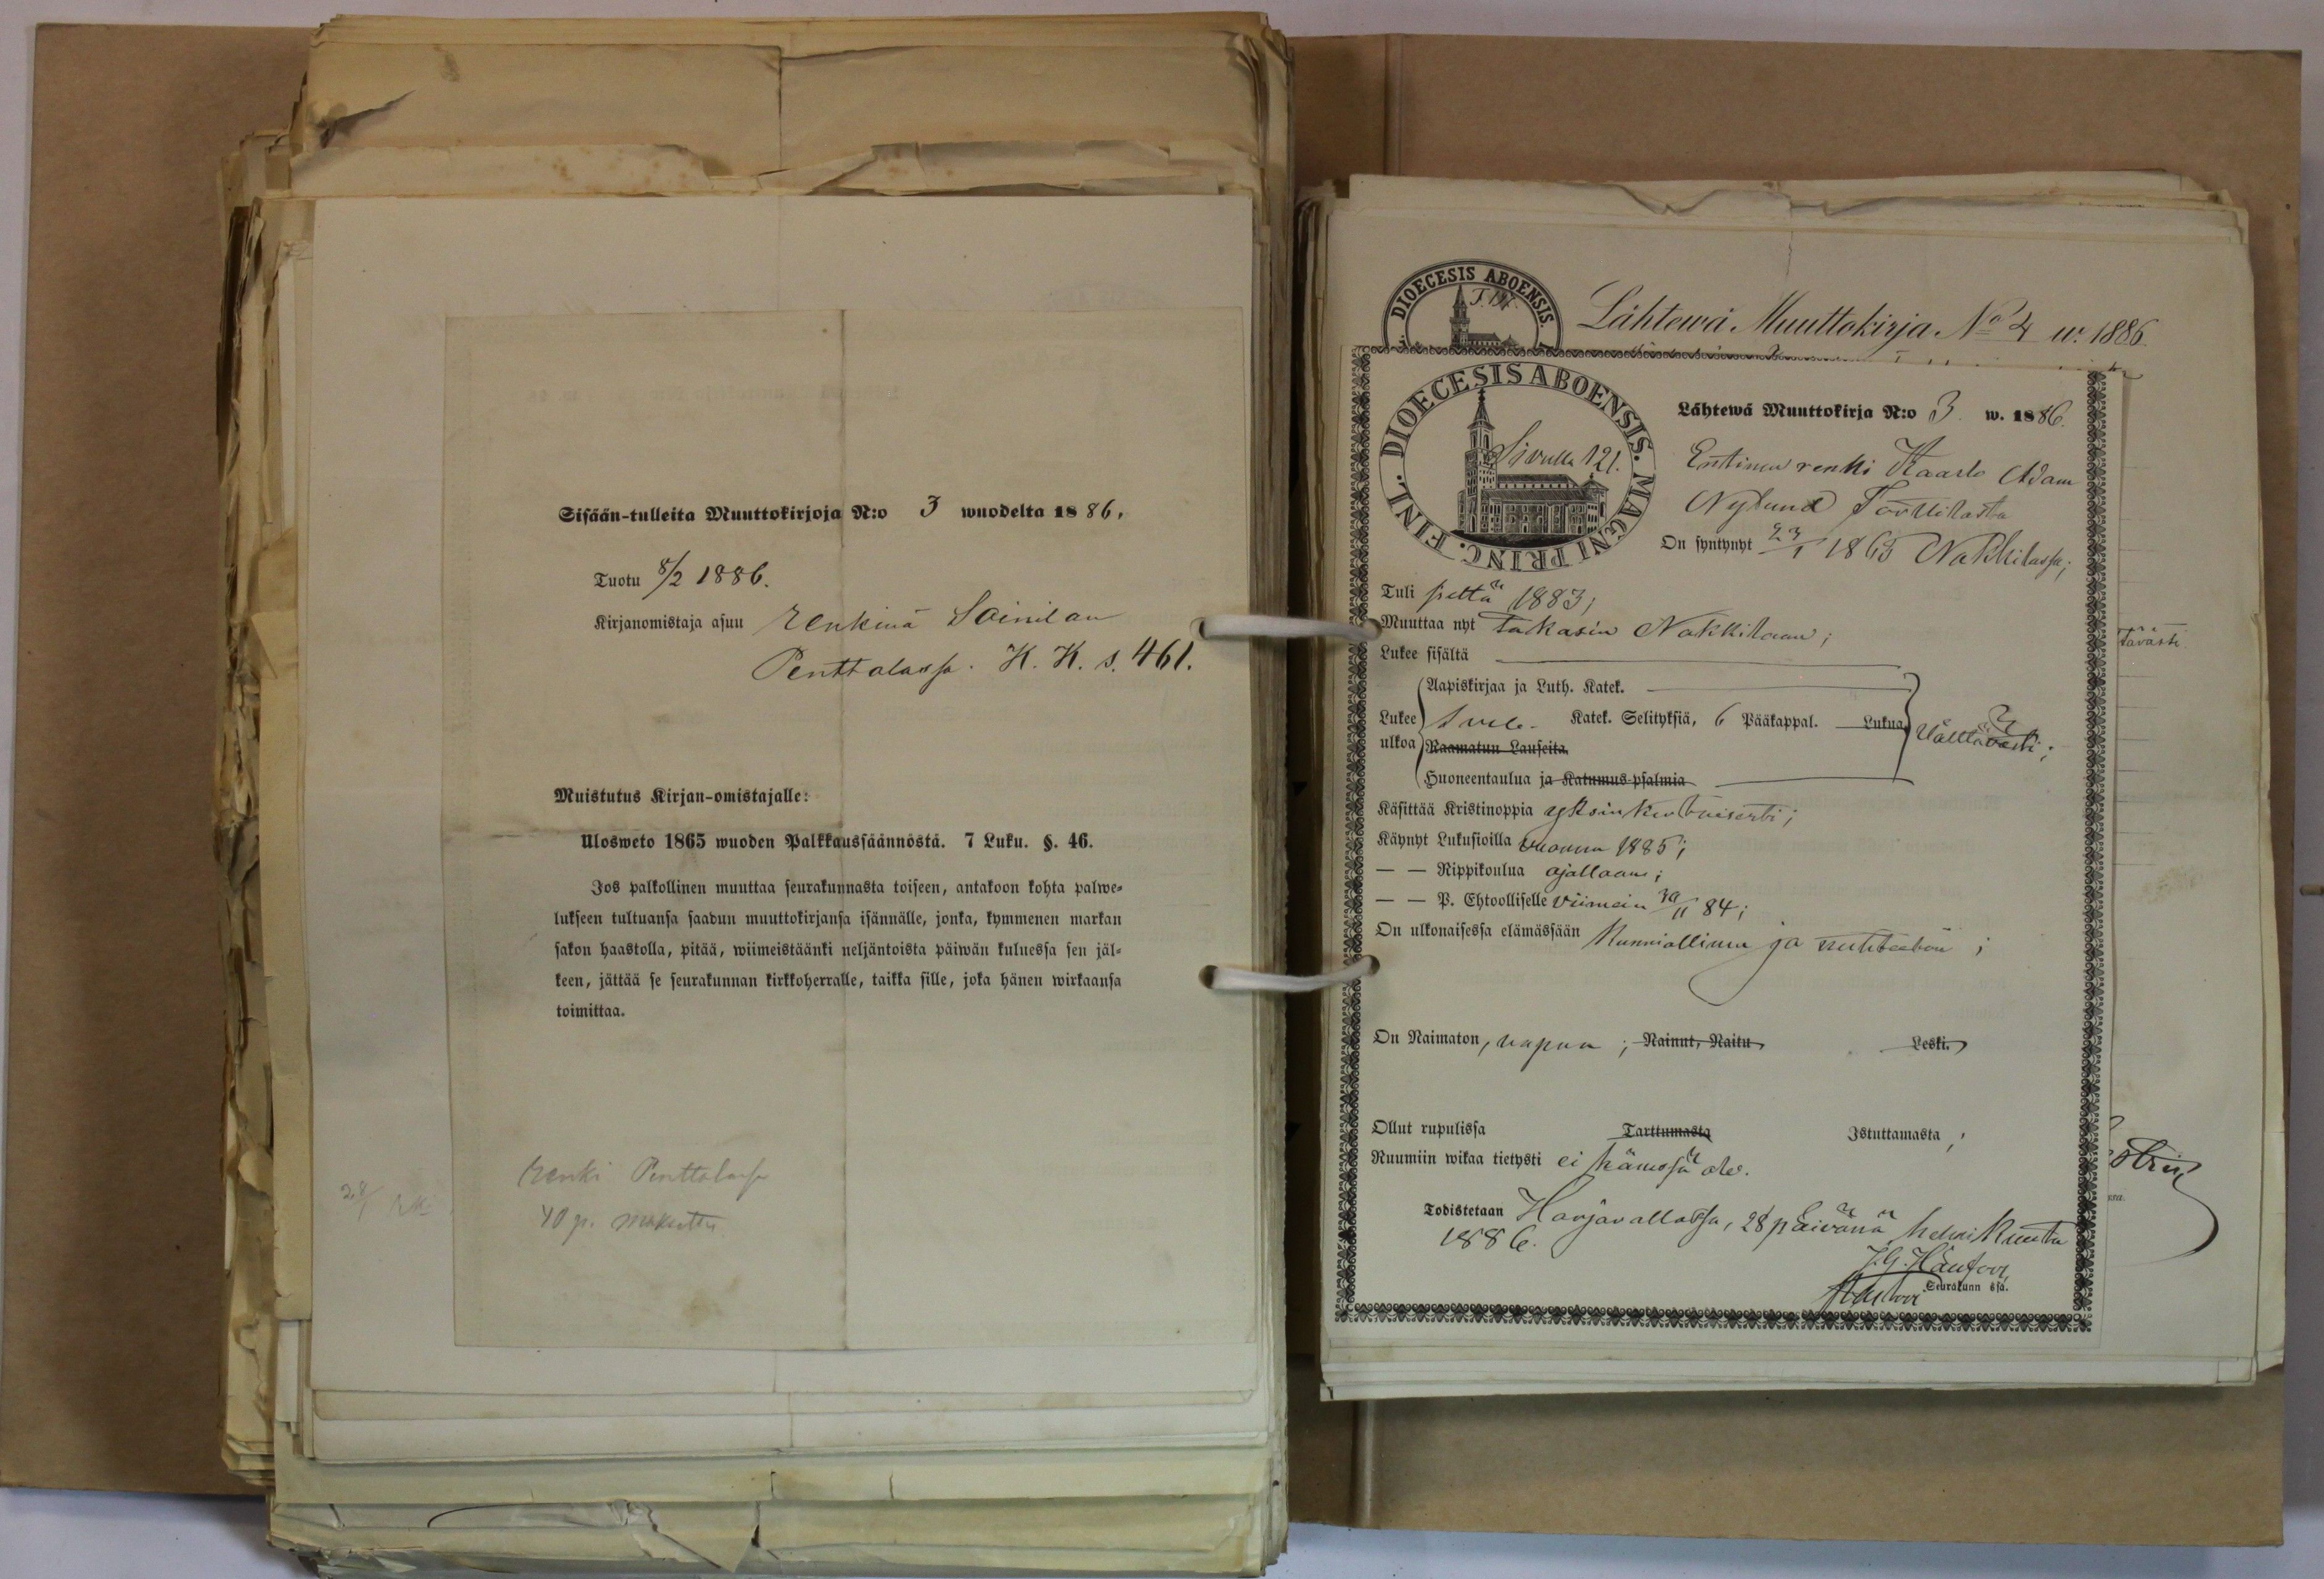 Sisään-tulleita Muuttokirjoja N:o 3 wuodelta 1886.
Tuotu 8/2 1886.
Kirjanomistaja asuu renkinä Soinilan
Penttalassa. K. K. s. 461.
Muistutus Kirjan-omistajalle:
Ulosweto 1865 wuoden Palkkaussäännöstä. 7 Luku. §. 46.
Jos palkollinen muuttaa seurakunnasta toiseen, antakoon kohta palwe-
lukseen tultuansa saadun muuttokirjansa isännälle, jonka, kymmenen markan
sakon haastolla, pitää, wiimeistäänki neljäntoista päiwän kuluessa sen jäl-
keen, jättää se seurakunnan kirkkoherralle, taikka sille, joka hänen wirkaansa
toimittaa.
renki Penttalassa
40 p. maksettu
28/1
DIOECESIS ABOENSIS.
Lähtewä Muuttokirja No 4 w. 1886.
DIOECESIS ABOENSIS. MAGNI PRINC. FINL.
Sivulla 121.
Lähtewä Muuttokirja N:o 3. w. 1886.
Entinen renki Kaarlo Adam
Nylund Torttilasta
On syntynyt 23/1 1865 Nakkilassa;
Tuli sieltä 1883;
Muuttaa nyt takasin Nakkilaan;
Lukee sisältä
Aapiskirjaa ja Luth. Katek.
Lukee ulkoa Katek. Selityksiä, 6 Pääkappal. Lukua Välttävästi;
Raamatun Lauseita
Huoneentaulua ja Katumus-psalmia
Käsittää Kristinoppia yksinkertaisesti;
Käynyt Lukusioilla vuonna 1885;
— — Rippikoulua ajallaan;
— — P. Ehtoolliselle viimein 30/11 84;
On ulkonaisessa elämässään Kunniallinen ja nuhteeton;
On Naimaton, vapaa; Nainut, Naitu Leski.
Ollut rupulissa Tarttumasta Istuttamasta;
Ruumiin wikaa tietysti ei hänessä ole.
Todistetaan Harjavallassa, 28 päivänä helmi kuuta
1886.
Seurakunn ssa.
tävästi.